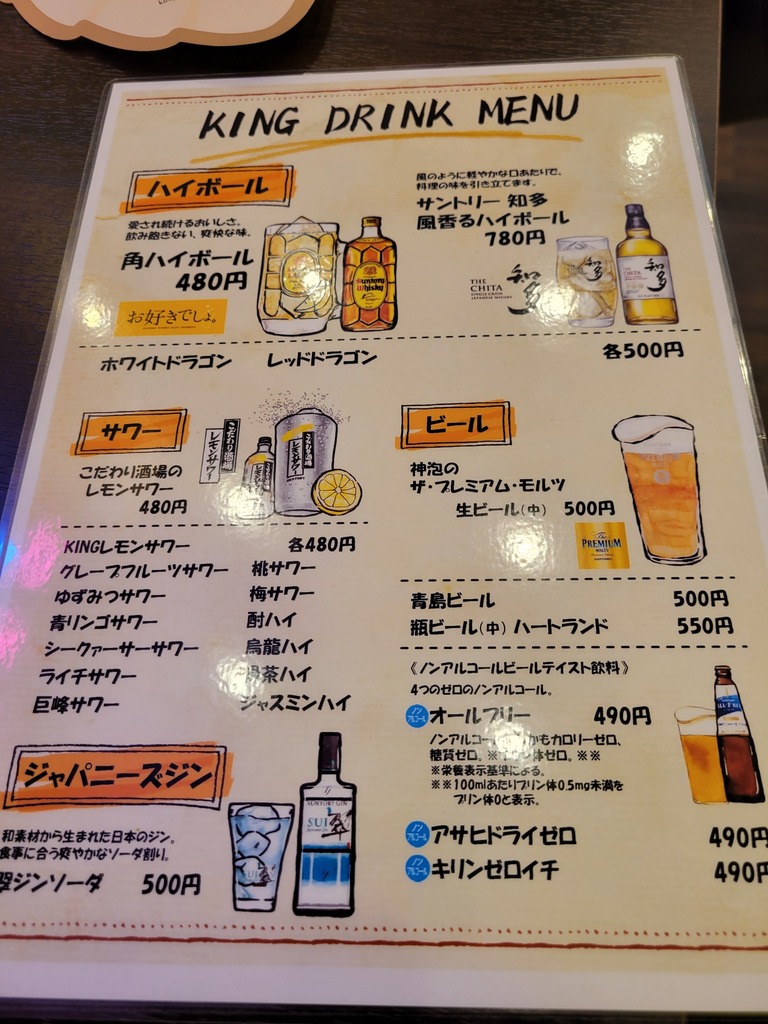 KING DRINK MENU
ハイボール
愛され続けるおいしさ。
飲み飽きない、爽快な味。
角ハイボール
480円
お好きでしょ。
Suntory
Whisky
風のように軽やかな口あたりで、
料理の味を引き立てます。
サントリー 知多
風香るハイボール
780円
THE
CHITA
SINGLE GRAIN
JAPANESE WHISKY
知多
THE
CHITA
知多
ホワイトドラゴン レッドドラゴン 各500円
サワー
こだわり酒場の
レモンサワー
480円
こだわり酒場の
レモンサワー
こだわり酒場の
レモンサワー
KINGレモンサワー 各480円
グレープフルーツサワー 桃サワー
ゆずみつサワー 梅サワー
青リンゴサワー 酎ハイ
シークァーサーサワー 烏龍ハイ
ライチサワー 茶ハイ
巨峰サワー ジャスミンハイ
ジャパニーズジン
和素材から生まれた日本のジン。
食事に合う爽やかなソーダ割り。
翠ジンソーダ 500円
SUNTORY GIN
SUI
翠
ビール
神泡の
ザ・プレミアム・モルツ
生ビール(中) 500円
The
PREMIUM
MALT'S
青島ビール 500円
瓶ビール(中) ハートランド 550円
《ノンアルコールビールテイスト飲料》
4つのゼロのノンアルコール。
ノンアルコール オールフリー 490円
ノンアルコール しかもカロリーゼロ、
糖質ゼロ。※プリン体ゼロ。※※
※栄養表示基準による。
※※100mlあたりプリン体0.5mg未満を
プリン体0と表示。
ノンアルコール アサヒドライゼロ 490円
ノンアルコール キリンゼロイチ 490円